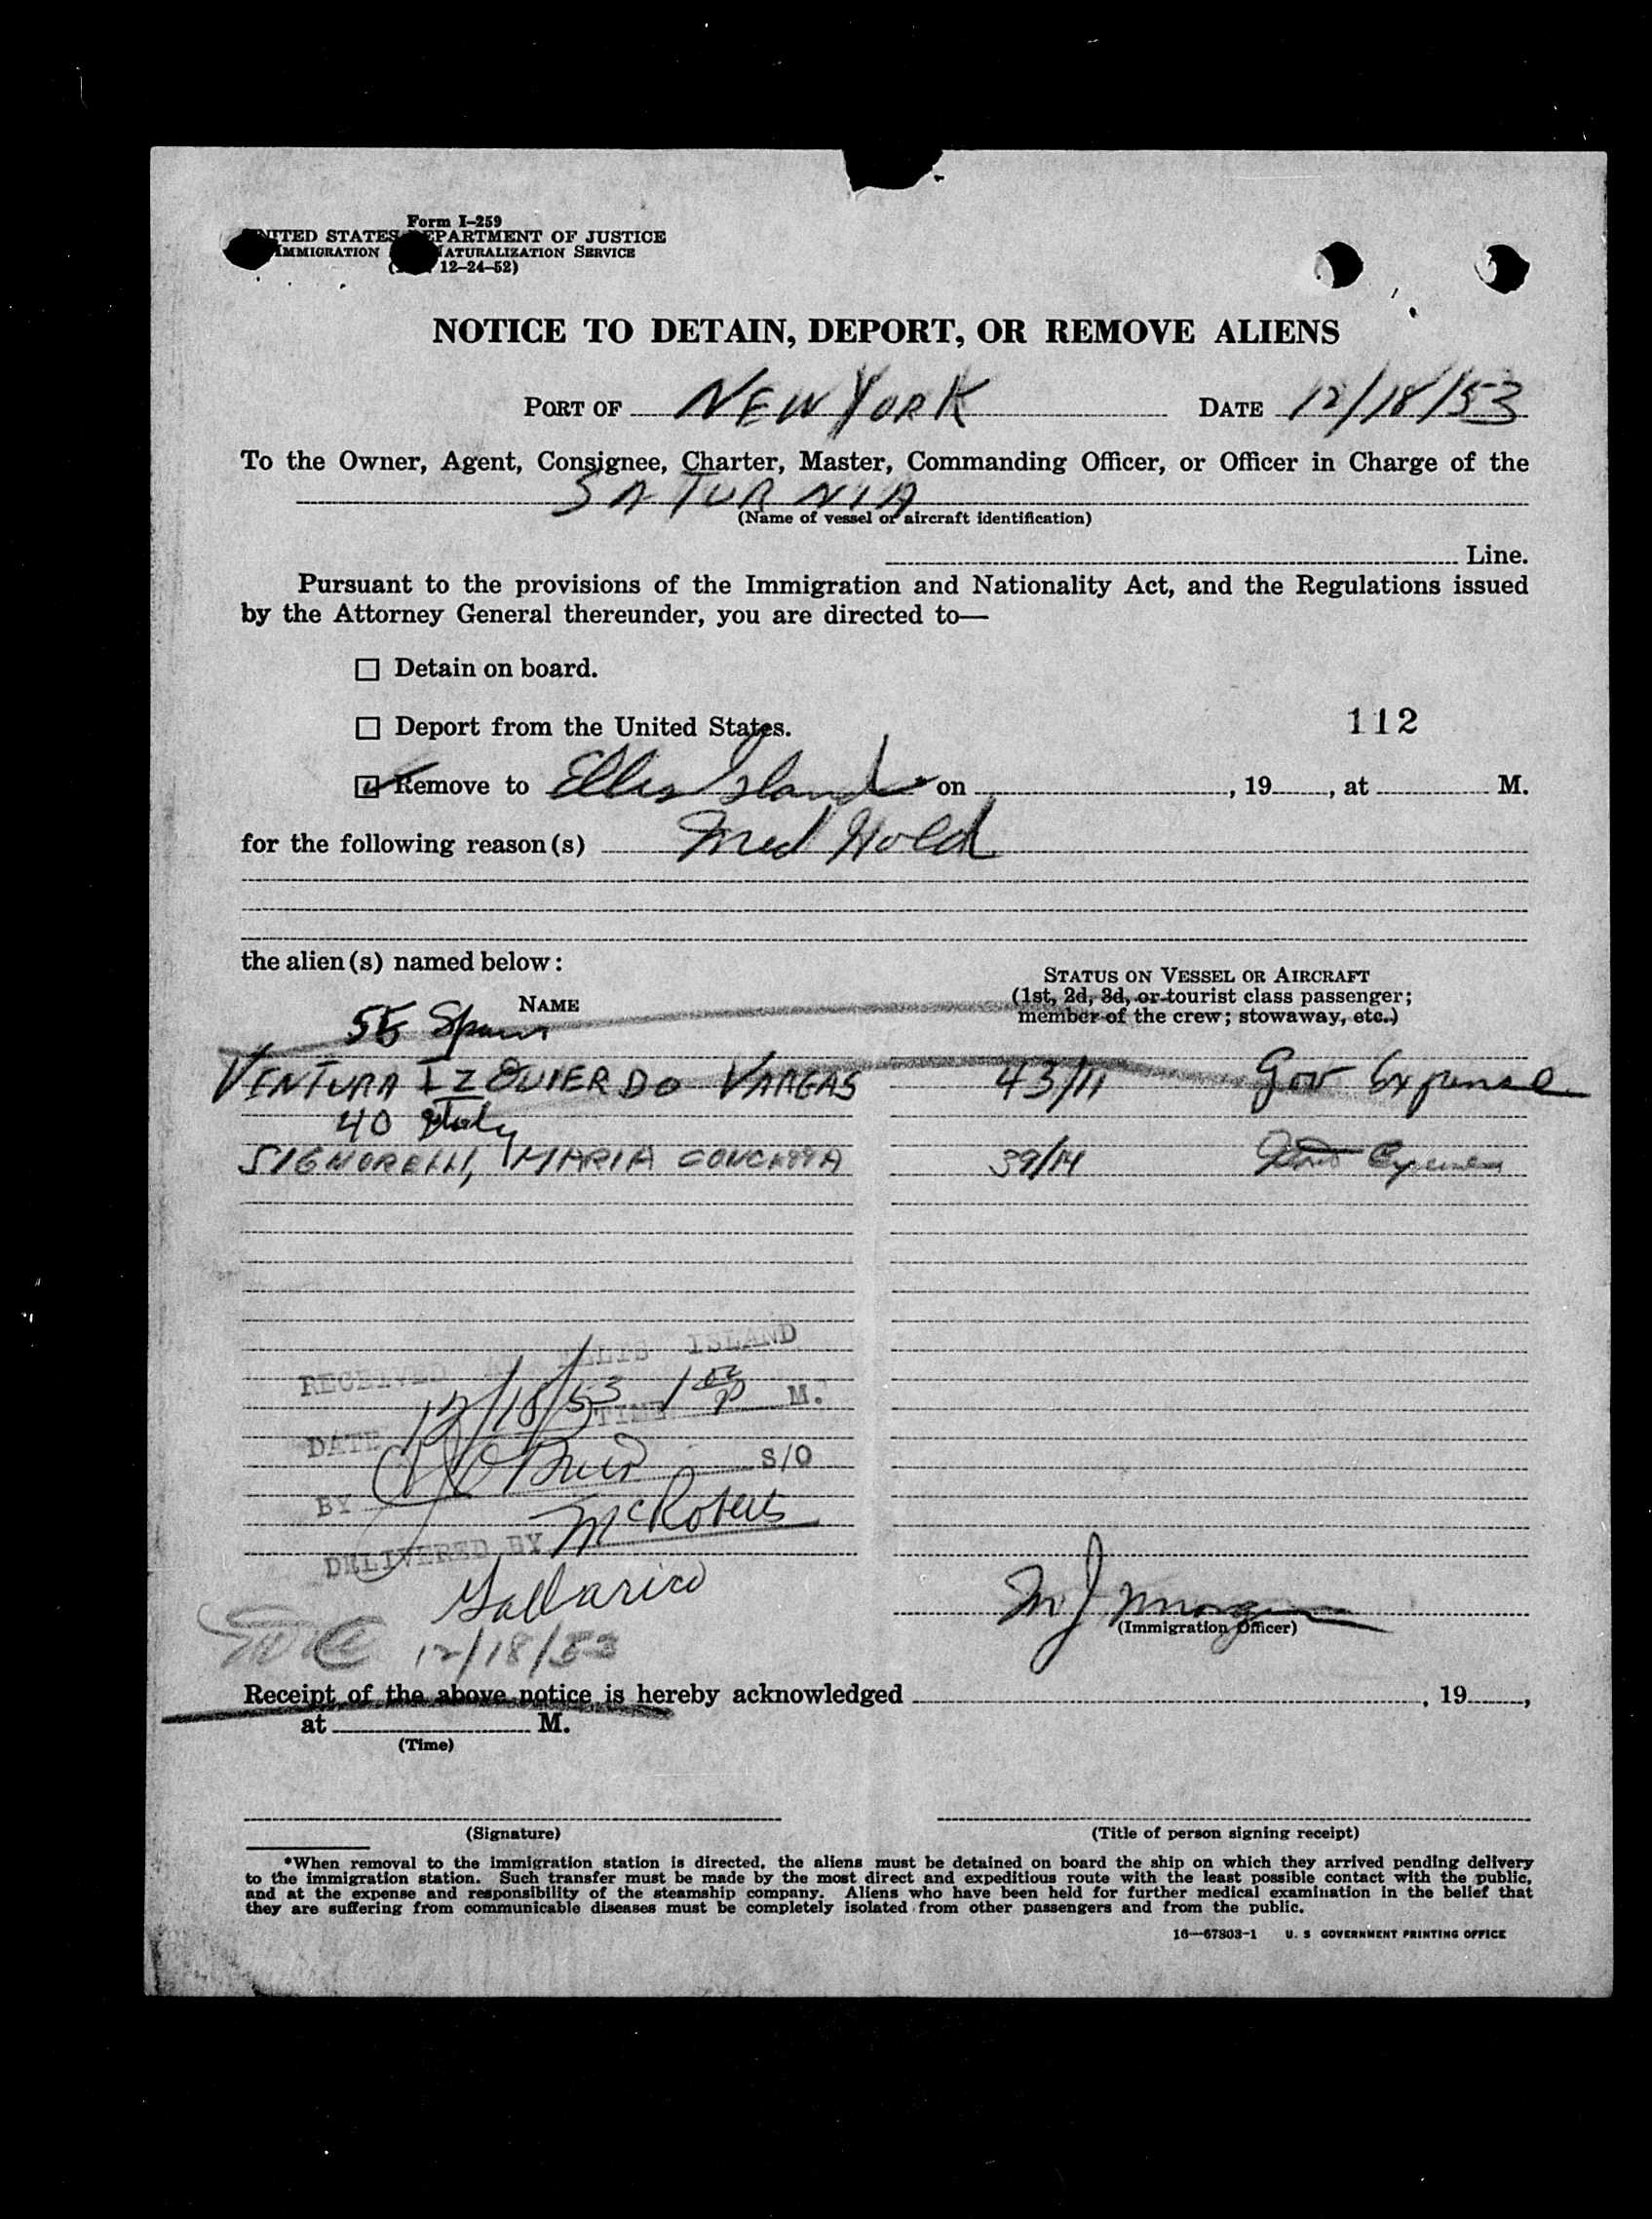 Form I-259
UNITED STATES DEPARTMENT OF JUSTICE
IMMIGRATION NATURALIZATION SERVICE
12-24-52)
NOTICE TO DETAIN, DEPORT, OR REMOVE ALIENS
PORT OF NEW YORK DATE 12/18/53
To the Owner, Agent, Consignee, Charter, Master, Commanding Officer, or Officer in Charge of the
SATURNIA
(Name of vessel or aircraft identification)
Line.
Pursuant to the provisions of the Immigration and Nationality Act, and the Regulations issued
by the Attorney General thereunder, you are directed to—
☐ Detain on board.
☐ Deport from the United States.
112
☑ Remove to Ellis Island on , 19 , at M.
for the following reason(s) Med Hold
the alien(s) named below:
NAME
STATUS ON VESSEL OR AIRCRAFT
(1st, 2d, 3d, or tourist class passenger;
member of the crew; stowaway, etc.)
55 Spain
VENTURA IZQUIERDO VARGAS 43/11 Gov Expense
40 Italy
SIGNORELLI, MARIA CONCETTA 39/14 Expense
RECEIVED AT ELLIS ISLAND
DATE 12/18/53 TIME 1 00 P M.
BY O'Brien S/O
DELIVERED BY McRoberts
Gallarico
12/18/53
M J Morgan
(Immigration Officer)
Receipt of the above notice is hereby acknowledged , 19 ,
at M.
(Time)
(Signature) (Title of person signing receipt)
*When removal to the immigration station is directed, the aliens must be detained on board the ship on which they arrived pending delivery
to the immigration station. Such transfer must be made by the most direct and expeditious route with the least possible contact with the public,
and at the expense and responsibility of the steamship company. Aliens who have been held for further medical examination in the belief that
they are suffering from communicable diseases must be completely isolated from other passengers and from the public.
16—67803-1 U. S GOVERNMENT PRINTING OFFICE